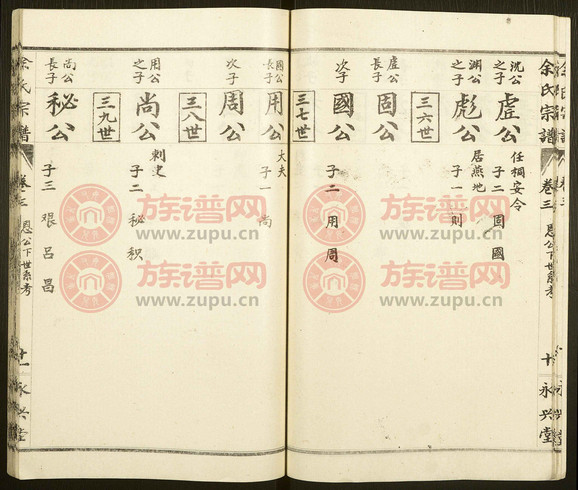 余氏宗譜
卷三
恩公下世系考
十
永兴堂
沈公之子
虗公
任稠安令
子二 固 國
渊公之子
彪公
居燕地
子一 则
三六世
虗公長子
固公
次子
國公
子二 用 周
三七世
國公長子
用公
大夫
子一 尚
次子
周公
三八世
用公之子
尚公
刺史
子二 秘 积
三九世
尚公長子
秘公
子三 張 呂 昌
余氏宗譜
卷三
恩公下世系考
十一
永兴堂
族谱网
www.zupu.cn
族谱网
www.zupu.cn
族谱网
www.zupu.cn
族谱网
www.zupu.cn